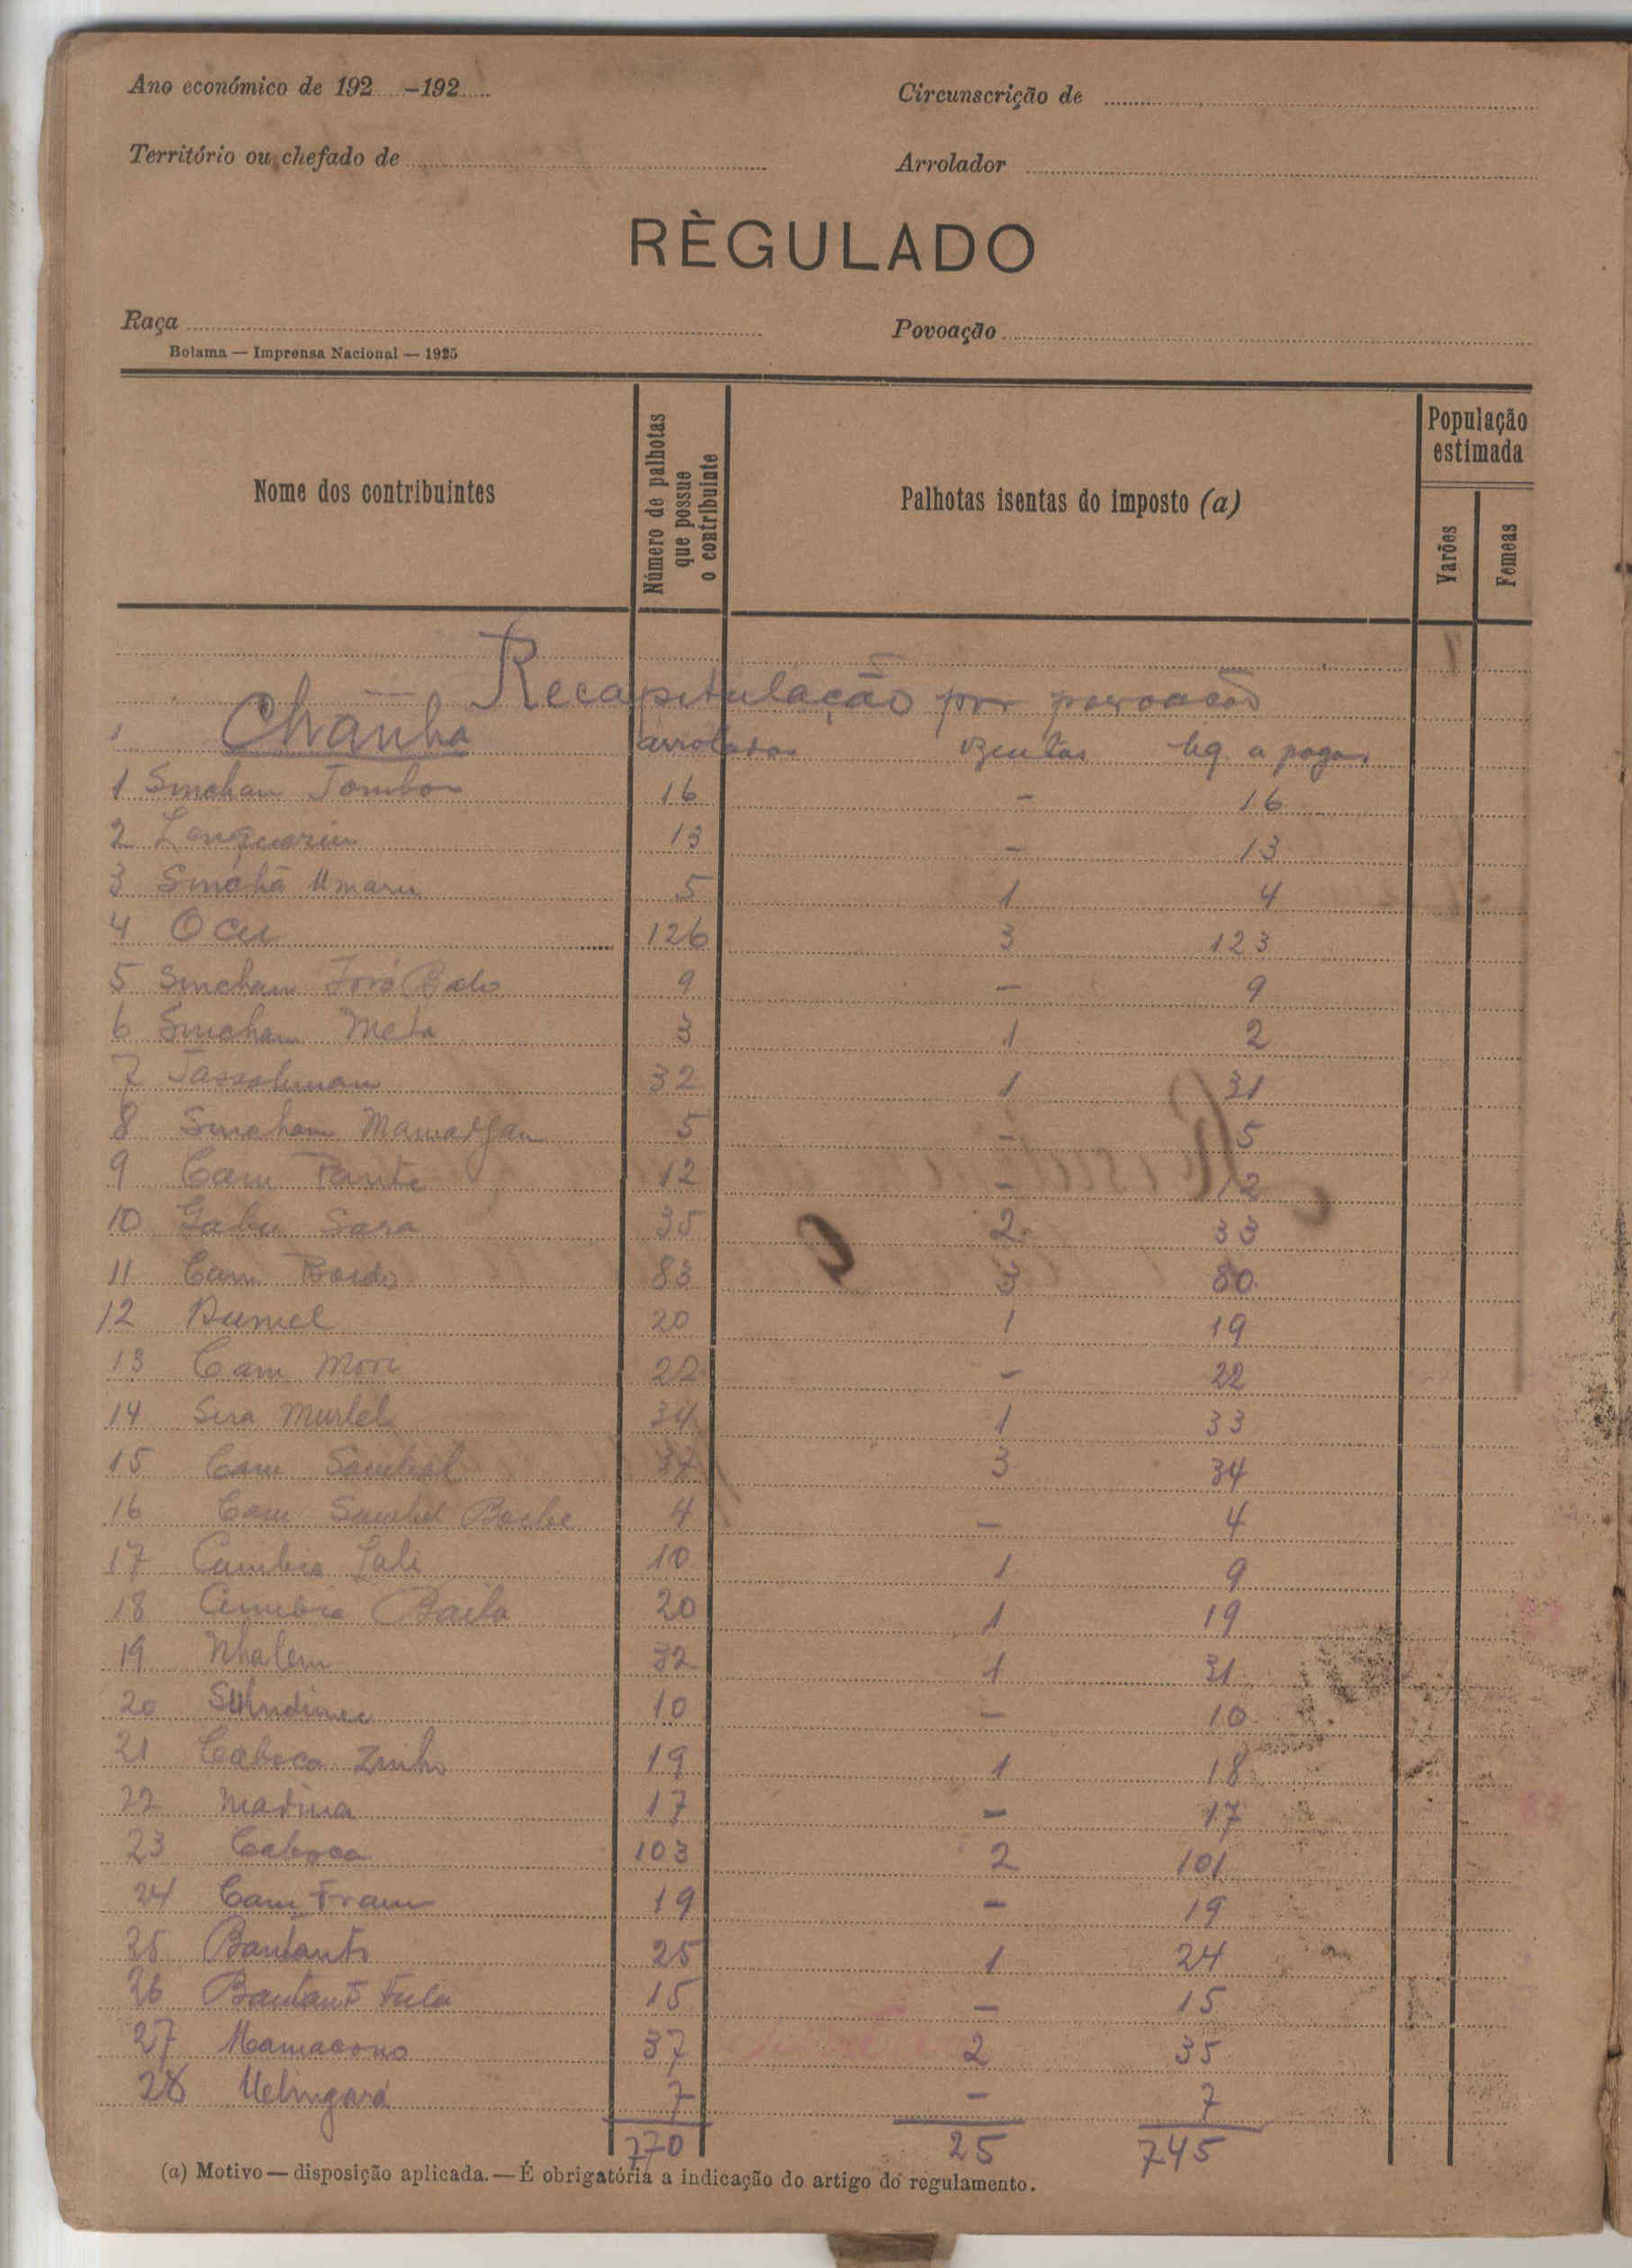 Ano económico de 192 -192
Circunscrição de
Território ou chefado de
Arrolador
RÈGULADO
Raça
Povoação
Bolama — Imprensa Nacional — 1925
Nome dos contribuintes
Número de palhotas que possue o contribuinte
Palhotas isentas do imposto (a)
População estimada
Varões
Femeas
Recapitulação por povoação
Chanha arroladas izentas liq. a pagar
1 Sincham Tombon 16 - 16
2 13 - 13
3 Sinchã Umaru 5 1 4
4 Ocu 126 3 123
5 Sincham 9 - 9
6 Sincham Meta 3 1 2
7 32 1 31
8 Sincham 5 - 5
9 Cam Pante 12 - 12
10 Gabu Sara 35 2 33
11 Cam 83 3 80
12 Dumel 20 1 19
13 Cam Mori 22 - 22
14 34 1 33
15 Cam Sambel 37 3 34
16 Cam Sambel 4 - 4
17 Cambia Lali 10 1 9
18 Baila 20 1 19
19 Nhalem 32 1 31
20 10 - 10
21 Caboca Zinho 19 1 18
22 Madina 17 - 17
23 Caboca 103 2 101
24 Cam Fram 19 - 19
25 Bantanto 25 1 24
26 Bantant Fula 15 - 15
27 Mamacono 37 2 35
28 Uelingará 7 - 7
770 25 745
(a) Motivo — disposição aplicada. — É obrigatória a indicação do artigo do regulamento.